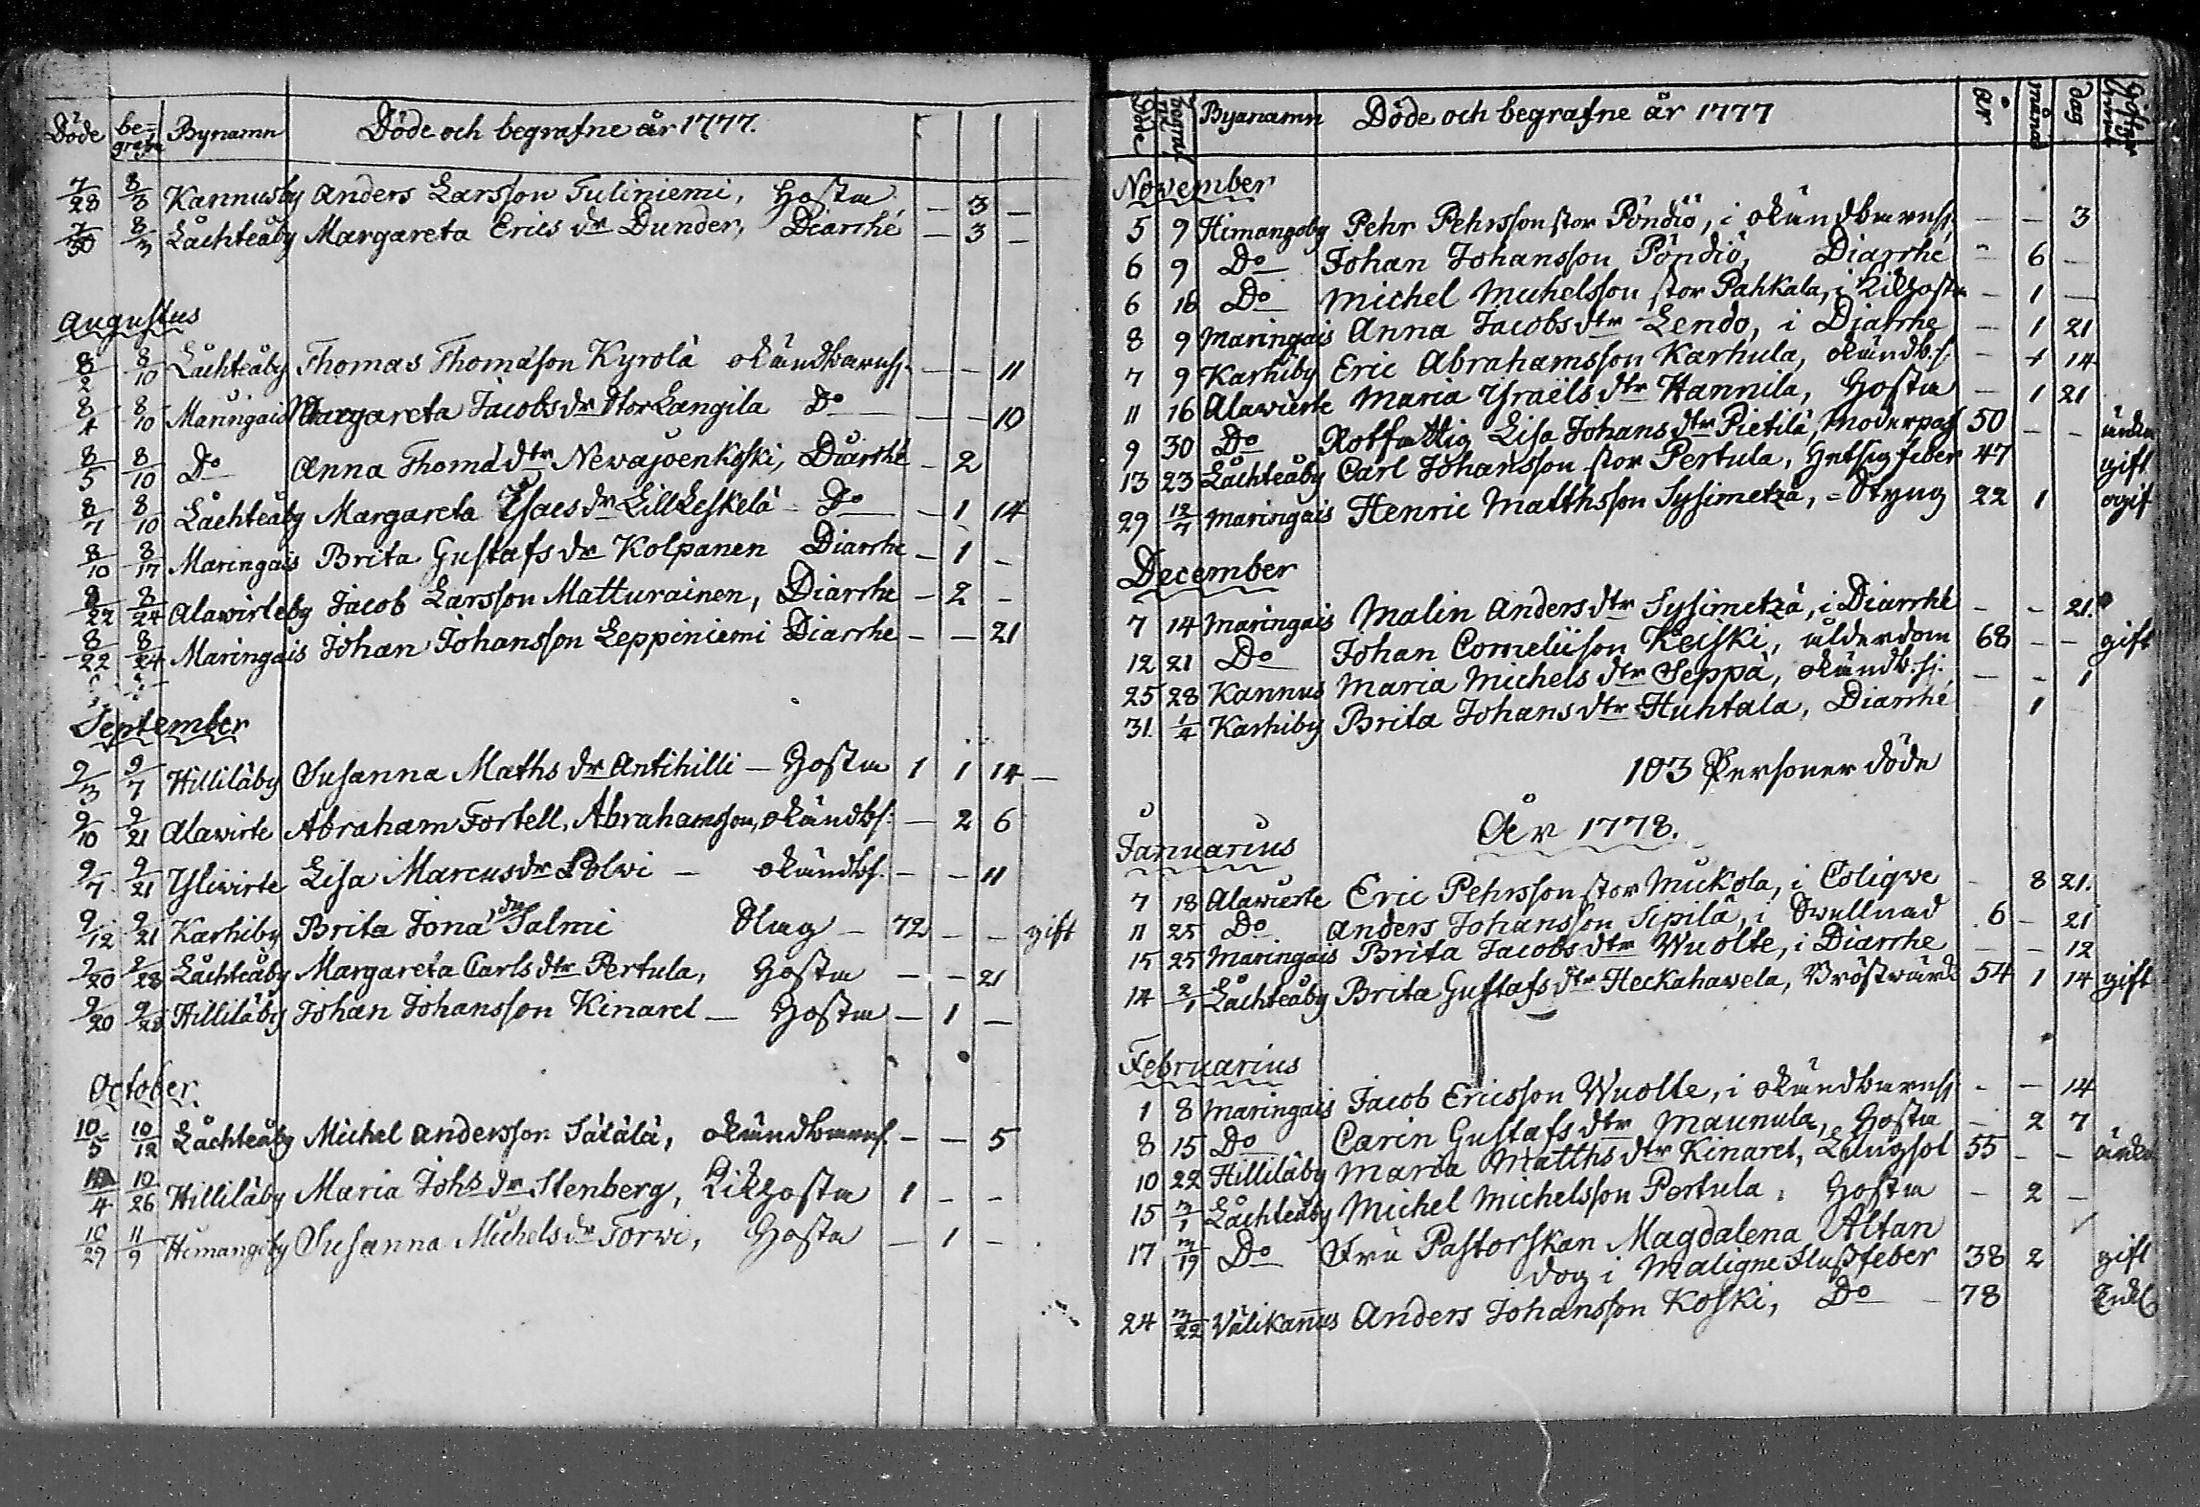 Döde be=grafne Bynamn Döde och begrafne år 1777.
7/28 8/3 Kannusby Anders Larsson Tuliniemi, Hosta — 3 —
7/30 8/3 Låchteåby Margareta Erics dr Dunder, Diarrhé — 3 —
Augustus
8/2 8/10 Låchteåby Thomas Thomason Kyrolä okändbarnss. — — 11
8/4 8/10 Maringais Margareta Jacobs dr StorLangila Do — — 10
8/5 8/10 Do Anna Thoma dtr Nevajoenkoski, Diarrhé — 2
8/7 8/10 Låchteåby Margareta Isacs dr LillLeskelä Do — 1 14
8/10 8/17 Maringais Brita Gustafs dr Kolpanen Diarrhé — 1 —
8/22 8/24 Alawirteby Jacob Larsson Matturainen, Diarrhe — 2 —
8/22 8/24 Maringais Johan Johansson Leppiniemi Diarrhé — — 21
September
9/3 9/7 Hilliläby Susanna Maths dr Antihilli — Hosta 1 1 14 —
9/10 9/21 Alavirte Abraham Fortell, Abrahamsson, okändbs. — 2 6
9/7 9/21 Ylivirte Lisa Marcus dr Polvi — okändbs. — — 11
9/12 9/21 Karhiby Brita Jona dr Salmi Slag — 72 — — gift
9/20 9/28 Låchteåby Margareta Carls dtr Pertula, Hosta — — 21
9/20 9/28 Hilliläby Johan Johansson Kinaret — Hosta — 1 —
October
10/5 10/12 Låchteåby Michel Andersson Sätälä, okändbarns. — — 5
10/4 10/26 Hilliläby Maria Johs dr Stenberg, Kikhosta 1 — —
10/29 11/9 Himangoby Susanna Michels dr Torvi, Hosta — 1 —
Döde begraf. Byanamn Döde och begrafne år 1777 år månad dag
November
5 9 Himangoby Pehr Pehrsson stor Pöndiö, i okändbarnss, — — 3
6 9 Do Johan Johansson Pöndiö, Diarrhé — 6 —
6 16 Do Michel Michelsson stor Pahkala, i Kikhosta — 1 —
8 9 Maringais Anna Jacobs dtr Lendo, i Diarrhe — 1 21
7 9 Karhiby Eric Abrahamsson Karhula, okändb.s. — 1 14
11 16 Alawierte Maria Ysraëls dtr Hannila, Hosta — 1 21
9 30 Do Rotfattig Lisa Johans dtr Pietilä, Moderpass 50 — — änka
13 23 Låchteåby Carl Johansson stor Pertula, Hetsigfeber 47 gift
29 12/7 Maringais Henric Matthsson Sysimetzä, = Styng 22 1 ogift
December
7 14 Maringais Malin Anders dtr Sysimetzä, i Diarrhé — — 21.
12 21 Do Johan Corneliison Keiski, ålderdom 68 — — gift
25 28 Kannus Maria Michels dtr Seppä, okändb.sj. — — 1
31. 1/4 Karhiby Brita Johans dtr Huhtala, Diarrhé 1
103 Personer döde
År 1778.
Januarius
7 18 Alawierte Eric Pehrsson stor Muckola, i Coliqve — 8 21.
11 25 Do Anders Johansson Sipilä, i Swullnad 6 — 21
15 25 Maringais Brita Jacobs dtr Wuolte, i Diarrhe — — 12
14 2/1 Låchteåby Brita Gustafs dtr Heckahavela, Bröstvärk 54 1 14 gift
Februarius
1 8 Maringais Jacob Ericsson Wuolte, i okändbarnss — — 14
8 15 Do Carin Gustafs dtr Maunula, Hosta — 2 7
10 22 Hilliläby Maria Matths dtr Kinaret, Lungsot 55 — — änka
15 3/1 Låchteåby Michel Michelsson Pertula, Hosta — 2 —
17 3/19 Do Fru Pastorskan Magdalena Altan
dog i Maligne Flussfeber 38 2 gift
24 3/22 Välikannus Anders Johansson Koski, Do — 78 Enkl